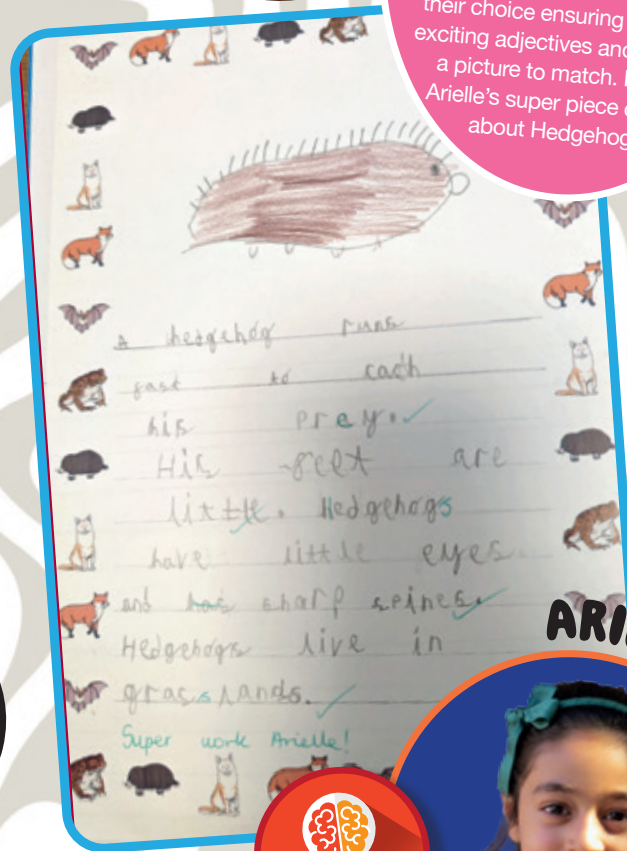 their choice ensuring
exciting adjectives and
a picture to match.
Arielle's super piece
about Hedgehog
A hedgehog runs
fast to cach
his prey.
His feet are
little. Hedgehogs
have little eyes
and has sharp spines.
Hedgehogs live in
grasslands.
Super work Arielle!
ARI